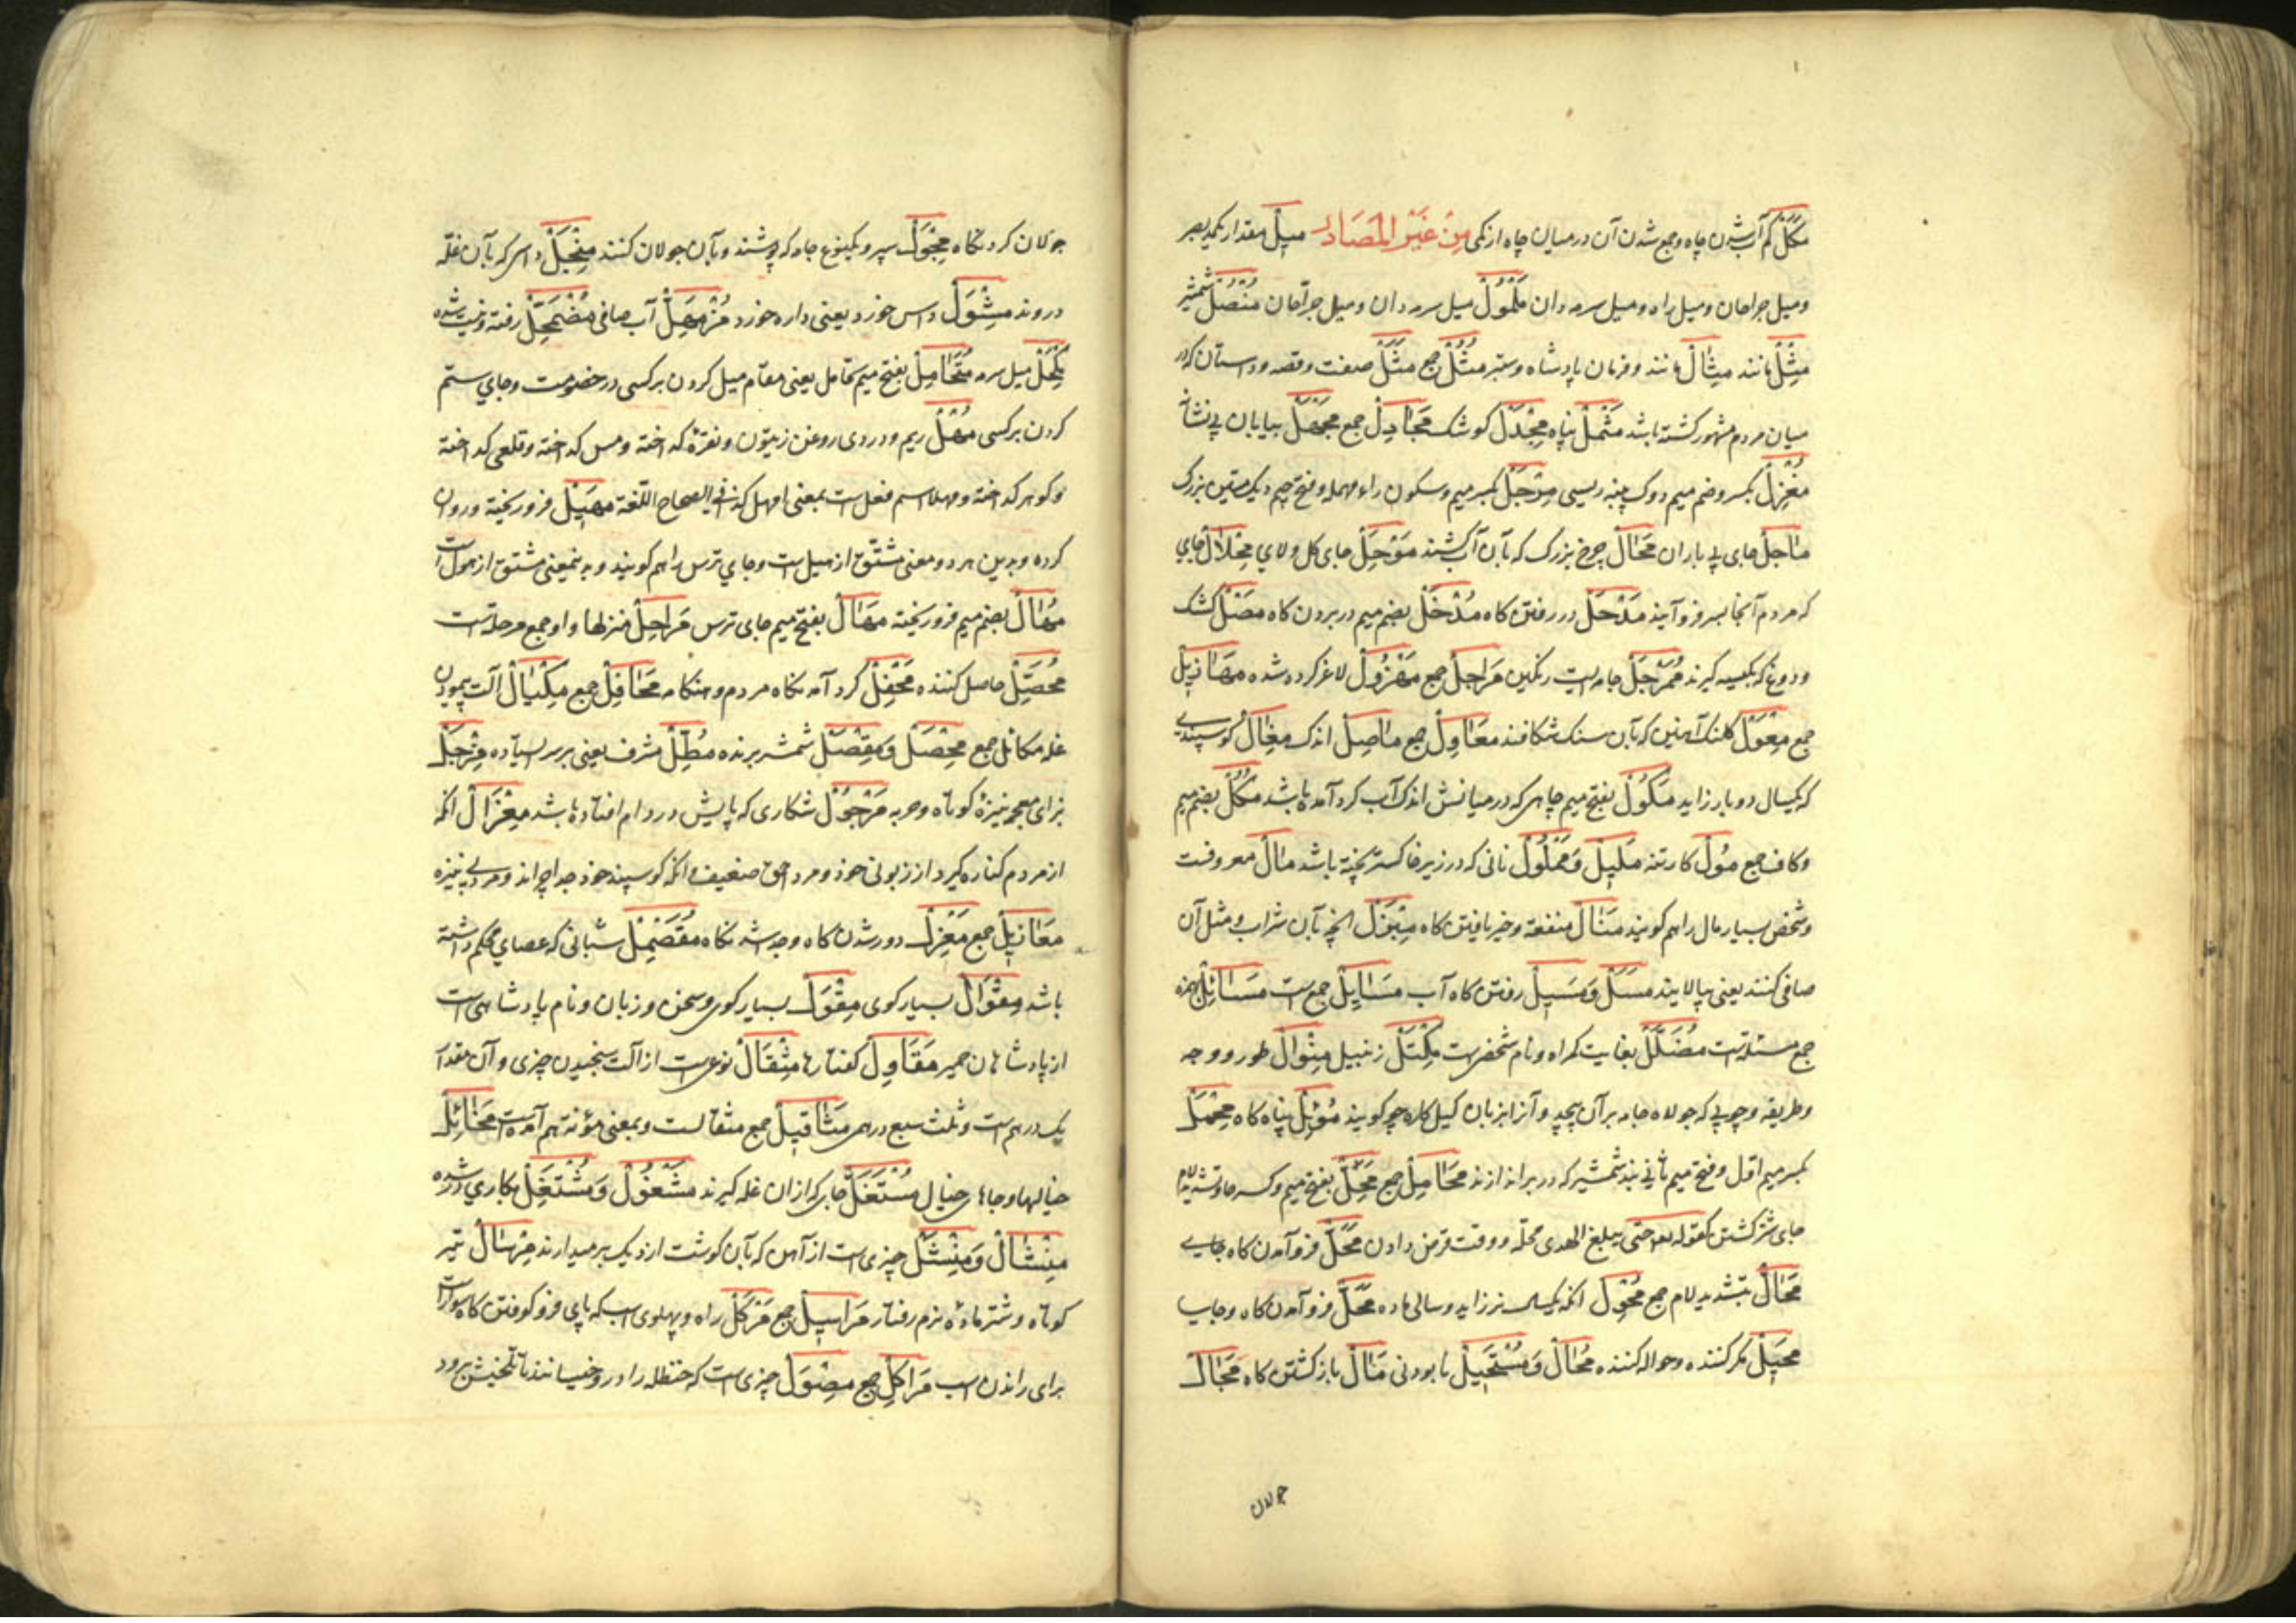 مَکَلْ کم آب شدن چاه و جمع شدن آن در میان چاه از کمی مِنْ غَیْرِ الْمَصَادِر مِیلْ مقدار یکمد بصر
و میل جراحان و میل راه و میل سرمه دان مُلْمُولْ میل سرمه دان و میل جراحان مُنْصُلْ شمشیر
مِثْلْ مانند مِثَالْ مانند و فرمان پادشاه و بستر مُثُلْ جمع مَثَلْ صفت و قصه و داستان که در
میان مردم مشهور کشته باشد مَثْمَلْ پناه مِجْدَلْ کوشک مَجَادِلْ جمع مَجْهَلْ بیابان بی نشان
مِغْزَلْ بکسر و ضم میم دوک پنبه ریسی مِرْجَلْ بکسر میم و سکون راء مهمله و فتح جیم دیک مسین بزرک
مَاجِلْ جای پر باران مَحَالْ چرخ بزرک که بآن آب کشند مَوْحِلْ جای کل و لای مِحْلَالْ جای
که مردم آنجا بسر فرو آیند مَدْخَلْ در رفتن کاه مُدْخَلْ بضم میم در بردن کاه مَصْلْ کشک
و دوغ که بکیسه کیرند مُمَرْجَلْ جامه ایست رنکین مَرَاجِلْ جمع مَهْزُولْ لاغر کرده شده مَهَازِیلْ
جمع مِعْوَلْ کلنک آهنین که بآن سنک شکافند مَعَاوِلْ جمع مَاصِلْ اندک مِغَالْ کوسپندی
که یکسال دو بار زاید مَکُولْ بفتح میم چاهی که در میانش اندک آب کرد آمده باشد مُکُلْ بضم میم
و کاف جمع مَلِیلْ وَ مَمْلُولْ نانی که در زیر خاکستر پخته باشد مَالْ معروفست
و شخص بسیار مال را هم کویند مَنَالْ منفعة و خیر یافتن کاه مِبْزَلْ انچه بآن شراب و مثل آن
صافی کنند یعنی بپالایند مَسَلْ وَ مَسِیلْ رفتن کاه آب مَسَایِلْ جمع است مَسَائِلْ بهمزه
جمع مسئلتست مُضَلَّلْ بغایت کمراه و نام شخصی است مِکْتَلْ زنبیل مِنْوَالْ طور و وجه
و طریقه و چوبی که جولاه جامه بر آن پیچد و آنرا بزبان کیل کاره چو کویند مَوْئِلْ پناه کاه مِحْمَلْ
بکسر میم اول و فتح میم ثانی بند شمشیر که در بر اندازند مَحَامِلْ جمع مَحِلّ بفتح میم و کسر حا و تشدید لام
جای شتر کشتن کقوله تعالی حتی یبلغ الهدی محله و وقت قرض دادن مَحَلّ فرو آمدن کاه جایی
مَحَالّ بتشدید لام جمع مُحْوِلْ انکه یکسال نر زاید و سالی ماده مَحَلّ فرو آمدن کاه و جایب
مُحِیلْ مکر کننده و حواله کننده مُحَالْ وَ مُسْتَحِیلْ نابودنی مَآلْ باز کشتن کاه مَجَالْ
جولان
جولان کردنکاه مِجْوَلْ سپر و یکنوع جامه که پوشند و بآن جولان کنند مِنْجَلْ داس که بآن غلّه
دروند مِشْوَلْ داس خورد یعنی داره خورد مُزْمَهِلّ آب صافی مُضْمَحِلّ رفته و نیست شده
مُکْحُلْ میل سرمه مُتَحَامَلْ بفتح میم تحامل یعنی مقام میل کردن بر کسی در خصومت و جای ستم
کردن بر کسی مُهْلْ ریم و دردی روغن زیتون و نقره کداخته و مس کداخته و قلعی کداخته
و کوهر کداخته و مهلا اسم فعل است بمعنی امهل کذا فی الصحاح اللّغة مَهِیلْ فرو ریخته و روان
کرده و بدین هر دو معنی مشتق از هیل است و جای ترس را هم کویند و بدین معنی مشتق از هول است
مُهَالْ بضم میم فرو ریخته مَهَالْ بفتح میم جای ترس مَرَاحِلْ منزلها و او جمع مرحلة است
مُحَصِّلْ حاصل کننده مَحْفِلْ کرد آمدنکاه مردم و هنکامه مَحَافِلْ جمع مِکْیَالْ آلت پیمودن
غله مکائل جمع مِخْصَلْ وَ مِقْصَلْ شمشیر برنده مُطِلّ مشرف یعنی بر سر ایستاده مِزْجَلْ
بزای معجمه نیزهٔ کوتاه و حربه مَرْجُولْ شکاری که پایش در دام افتاده باشد مِعْزَالْ انکه
از مردم کناره کیرد از زبونی خود و مرد احمق ضعیف و انکه کوسپند خود جدا چراند و مرد بی نیزه
مَعَازِیلْ جمع مَعْزِلْ دور شدن کاه و جدا شدنکاه مُقَصْمِلْ شبانی که عصای محکم داشته
باشد مِقْوَالْ بسیار کوی مِقْوَلْ بسیار کوی و سخن و زبان و نام پادشاهی است
از پادشاهان حمیر مَقَاوِلْ کفتارها مِثْقَالْ نوعی است از آلت سنجیدن چیزی و آن مقدار
یک درهم است و ثلث سبع درهم مَثَاقِیلْ جمع مثقالست و بمعنی مؤنة هم آمده است مَخَائِلْ
خیالها و جاهای خیال مُسْتَغَلّ جایی که ازان غله کیرند مَشْغُولْ وَ مُشْتَغِلْ بکاری در شده
مِنْشَالْ وَ مِنْشَلْ چیزی است از آهن که بآن کوشت از دیک بر میدارند مِرْسَالْ تیر
کوتاه و شتر مادهٔ نرم رفتار مَرَاسِیلْ جمع مَرْکَلْ راه و پهلوی اسب که پای فرو کوفتن کاه سوارست
برای راندن اسب مَرَاکِلْ جمع مِصْوَلْ چیزی است که حنظله را در و خیسانند تا تلخیش برود